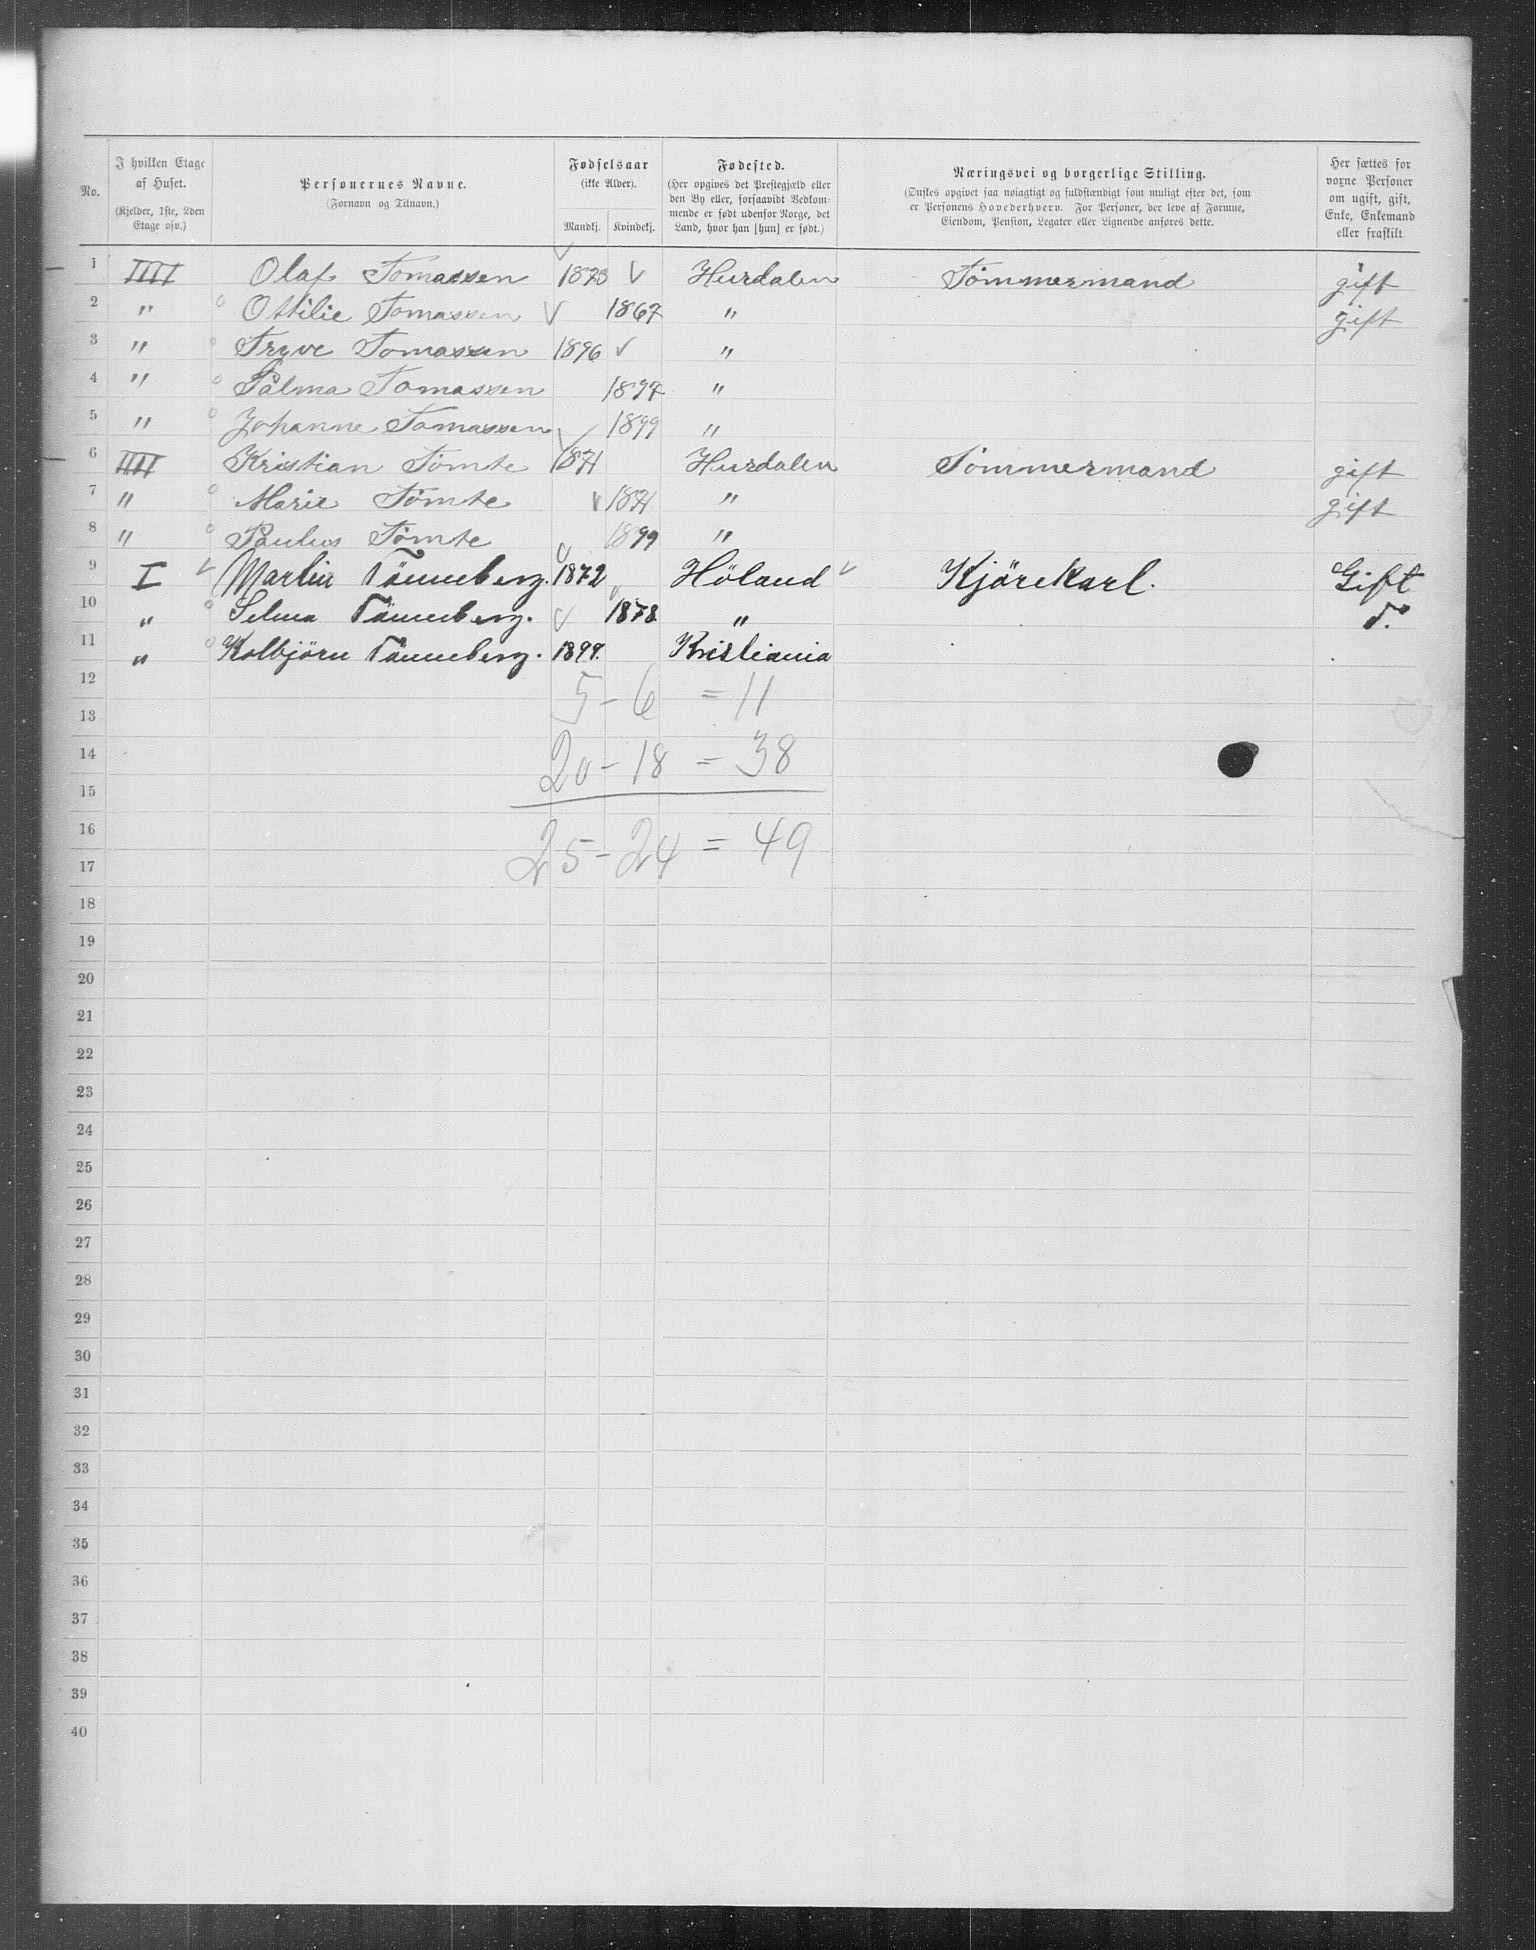 No. I hvilken Etage af Huset. (Kjelder, 1ste, 2den Etage osv.) Personernes Navne. (Fornavn og Tilnavn.) Fødselsaar (ikke Alder). Mandkj. Kvindekj. Fødested. (Her opgives det Prestegjæld eller den By eller, forsaavidt Vedkommende er født udenfor Norge, det Land, hvor han [hun] er født.) Næringsvei og borgerlige Stilling. (Ønskes opgivet saa nøiagtigt og fuldstændigt som muligt efter det, som er Personens Hovederhverv. For Personer, der leve af Formue, Eiendom, Pension, Legater eller Lignende anføres dette. Her sættes for voxne Personer om ugift, gift, Enke, Enkemand eller fraskilt
1 IIII Olaf Tomassen 1873 Hurdalen Tömmermand gift
2 " Ottilie Tomassen 1867 " gift
3 " Tryve Tomassen 1896 "
4 " Palma Tomassen 1897 "
5 " Johanne Tomassen 1899 "
6 IIII Kristian Tömte 1871 Hurdalen Tömmermand gift
7 " Marie Tömte 1871 " gift
8 " Paulus Tömte 1899 "
9 I Martin Tänneberg. 1872 Höland Kjörekarl. Gift
10 " Selma Tänneberg. 1878 " d.°
11 " Kolbjörn Tänneberg. 1899. Kristiania
12
5 - 6 = 11
13
14
20 - 18 = 38
15
16
25 - 24 = 49
17
18
19
20
21
22
23
24
25
26
27
28
29
30
31
32
33
34
35
36
37
38
39
40